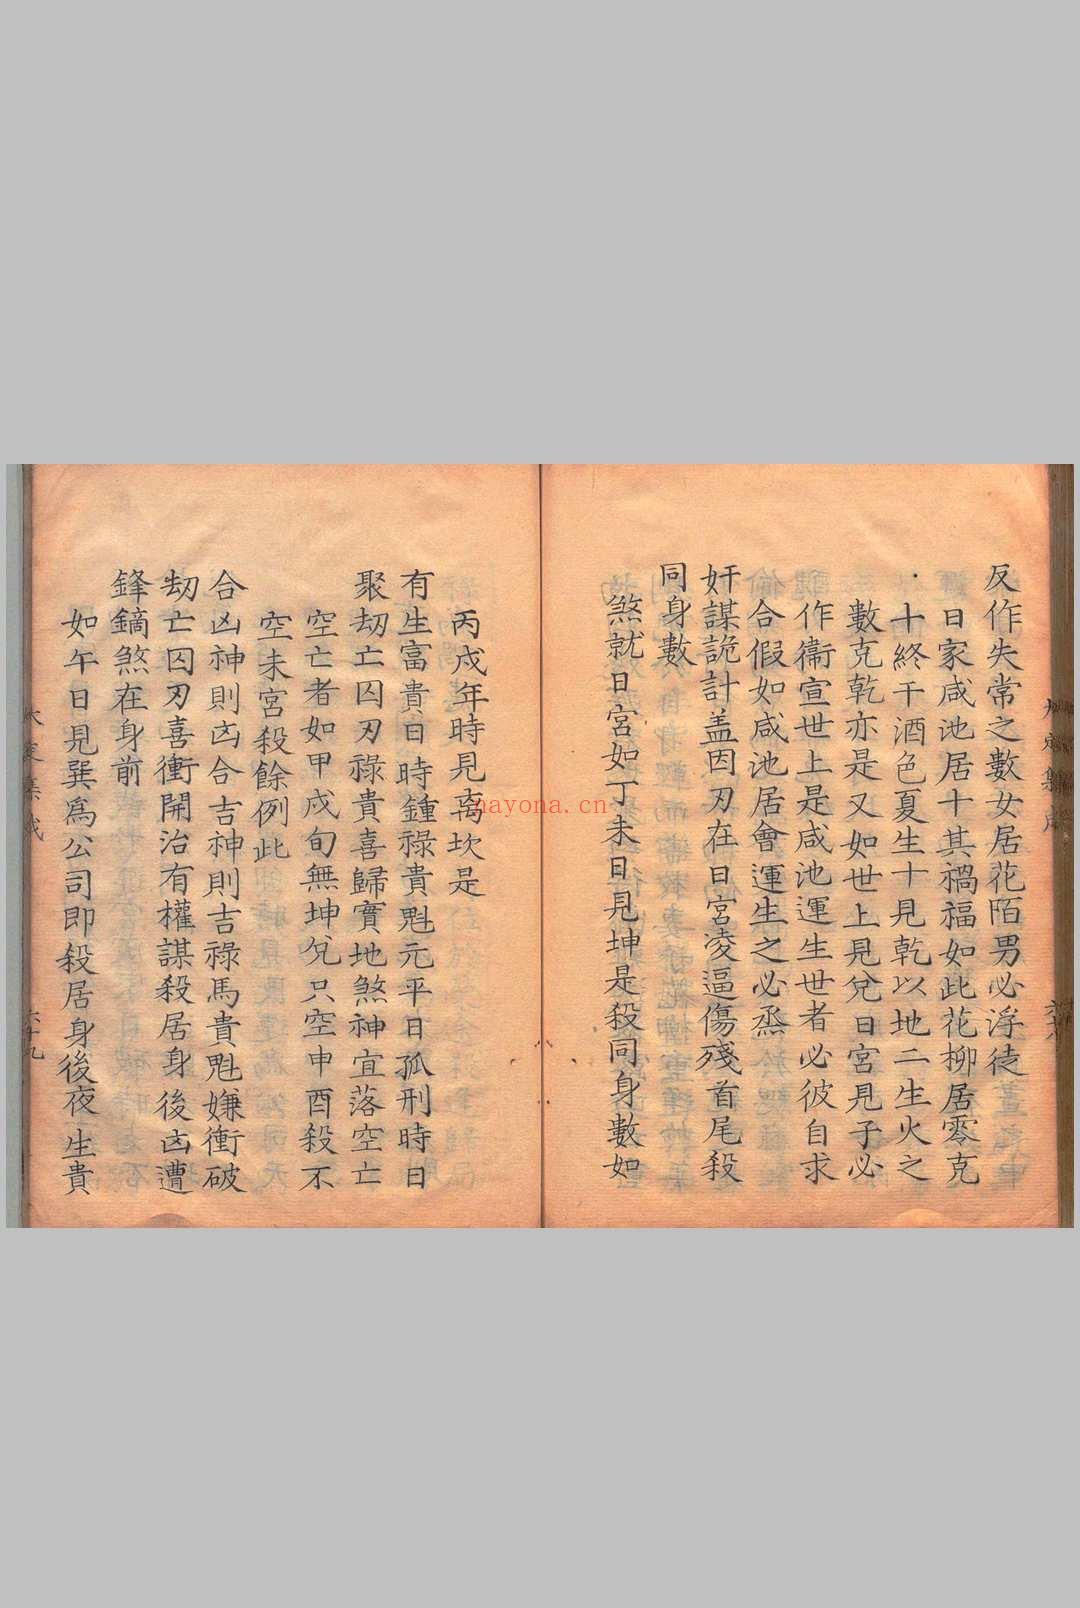 反作失常之數女居花陌男必浮徒
日家咸池居十其禍福如此花柳居零克
十終干酒色夏生十見乾以地二生火之
數克乾亦是又如世上見兌日宮見子必
作衞宣世上是咸池運生世者必彼自求
合假如咸池居會運生之必烝
奸謀詭計盖因刃在日宮凌逼傷殘首尾殺
同身數
煞就日宮如丁未日見坤是殺同身數如
丙戌年時見离坎是
有生富貴日時鍾祿貴尅元平日孤刑時日
聚劫亡囚刃祿貴喜歸實地煞神宜落空亡
空亡者如甲戌旬無坤兌只空申酉殺不
空未宮殺餘例此
合凶神則凶合吉神則吉祿馬貴尅嫌衝破
劫亡囚刃喜衝開治有權謀殺居身後凶遭
鋒鏑煞在身前
如午日見巽爲公司即殺居身後夜生貴
六十九
nayona.cn